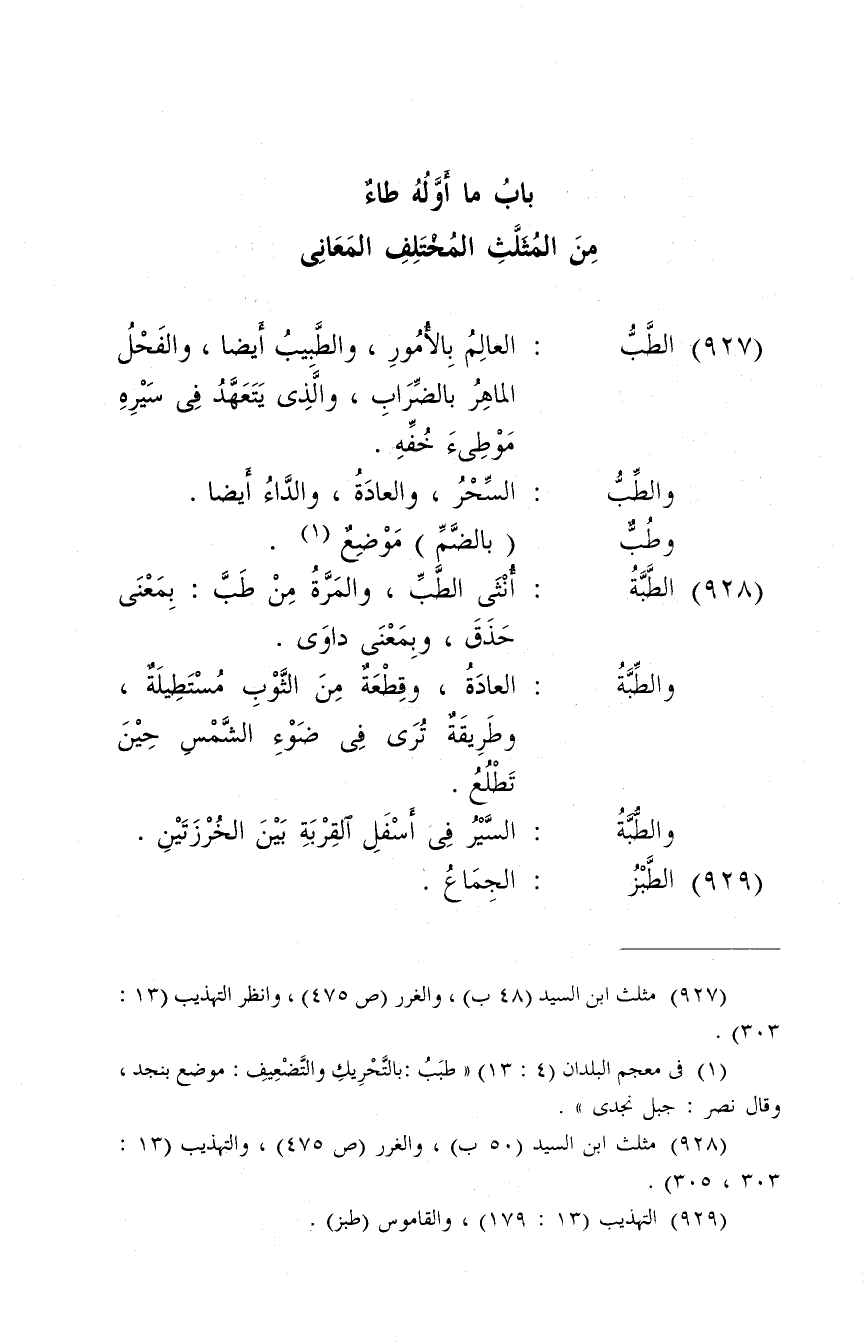 بابُ ما أَوَّلُهُ طاءٌ
مِنَ المُثَلَّثِ المُخْتَلِفِ المَعَانِى
(٩٢٧) الطَّبُّ : العالِمُ بِالأُمُورِ ، والطَّبِيبُ أَيضا ، والفَحْلُ
الماهِرُ بالضِّرَابِ ، والَّذِى يَتَعَهَّدُ فِى سَيْرِهِ
مَوْطِىءَ خُفِّهِ .
والطِّبُّ : السِّحْرُ ، والعادَةُ ، والدَّاءُ أَيضا .
وطُبٌّ ( بالضَّمِّ ) مَوْضِعٌ (١) .
(٩٢٨) الطَّبَّةُ : أُنْثَى الطَّبِّ ، والمَرَّةُ مِنْ طَبَّ : بِمَعْنَى
حَذَقَ ، وبِمَعْنَى داوَى .
والطِّبَّةُ : العادَةُ ، وقِطْعَةٌ مِنَ الثَّوْبِ مُسْتَطِيلَةٌ ،
وطَرِيقَةٌ تُرَى فِى ضَوْءِ الشَّمْسِ حِيْنَ
تَطْلُعُ .
والطُّبَّةُ : السَّيْرُ فِى أَسْفَلِ ٱلقِرْبَةِ بَيْنَ الخُرْزَتَيْنِ .
(٩٢٩) الطَّبْزُ : الجِمَاعُ .
(٩٢٧) مثلث ابن السيد (٤٨ ب) ، والغرر (ص ٤٧٥) ، وانظر التهذيب (١٣ :
٣٠٣) .
(١) فى معجم البلدان (٤ : ١٣) « طَبَبُ :بالتَّحْرِيكِ والتَّضْعِيفِ : موضع بنجد ،
وقال نصر : جبل نجدى » .
(٩٢٨) مثلث ابن السيد (٥٠ ب) ، والغرر (ص ٤٧٥) ، والتهذيب (١٣ :
٣٠٣ ، ٣٠٥) .
(٩٢٩) التهذيب (١٣ : ١٧٩) ، والقاموس (طبز) .